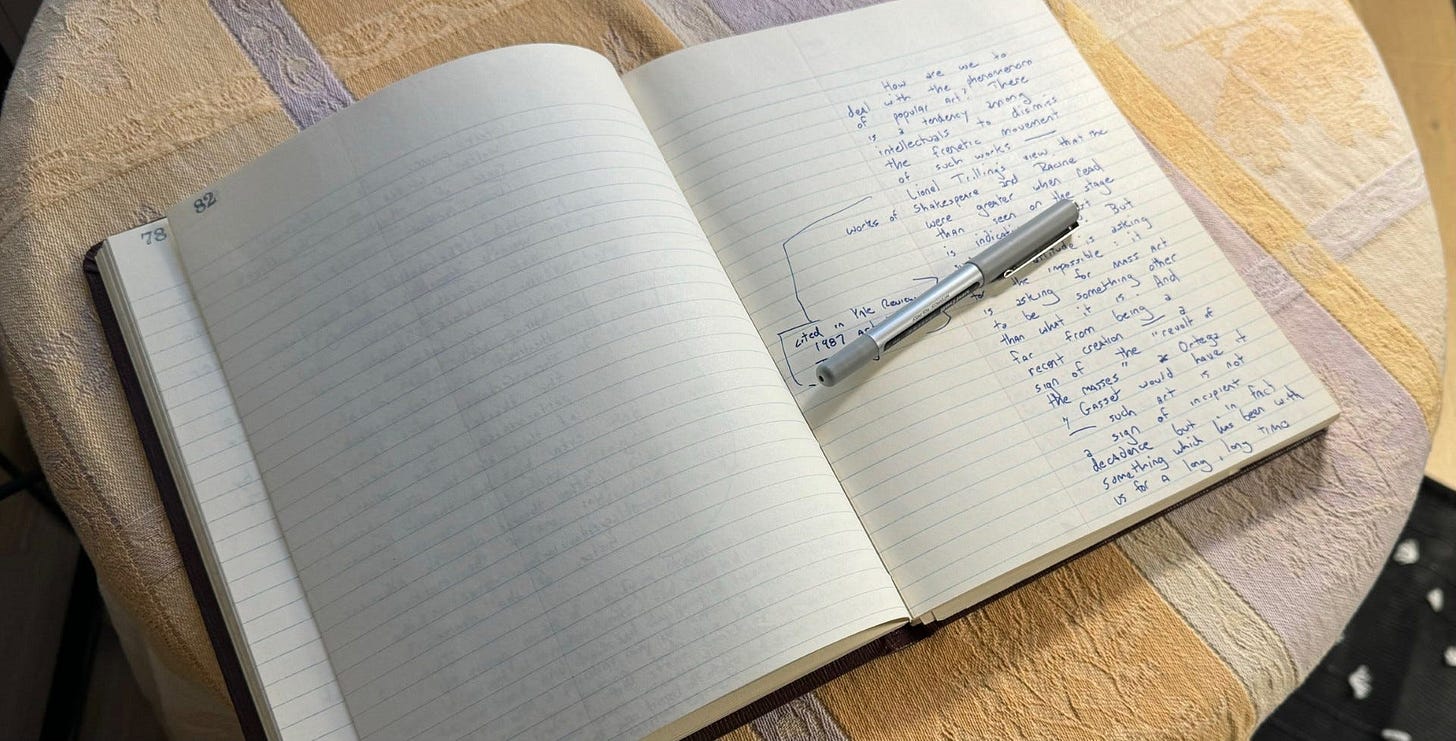 82
78
How are we to
deal with the phenomenon
of popular Art? There
is a tendency among
intellectuals to dismiss
the frenetic movement
of such works —
Lionel Trilling's view that the
works of Shakespeare and Racine
were greater when read
than seen on the stage
is
But
attitude is asking
for the impossible: it
is asking for mass Art
to be something other
than what it is. And
far from being a
recent creation — a
sign of the "revolt of
the masses" as Ortega
y Gasset would have it
— such art is not
a sign of incipient
decadence but in fact
something which has been with
us for a long, long time
cited in Yale Review
1987